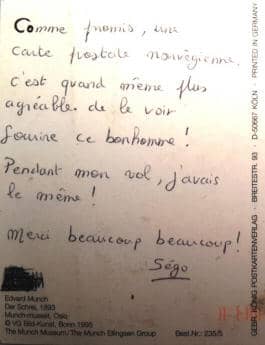 Comme promis, une
carte postale norvégienne.
c'est quand même plus
agréable de le voir
sourire ce bonhomme!
Pendant mon vol, j'avais
le même!
Merci beaucoup beaucoup!
Ségo
Edvard Munch
Der Schrei, 1893
Munch-museet, Oslo
© VG Bild-Kunst, Bonn 1995
The Munch Museum/The Munch Ellingsen Group
Best.Nr.: 235/5
POSTKARTENVERLAG · BREITESTR. 93 · D-50667 KÖLN · PRINTED IN GERMANY